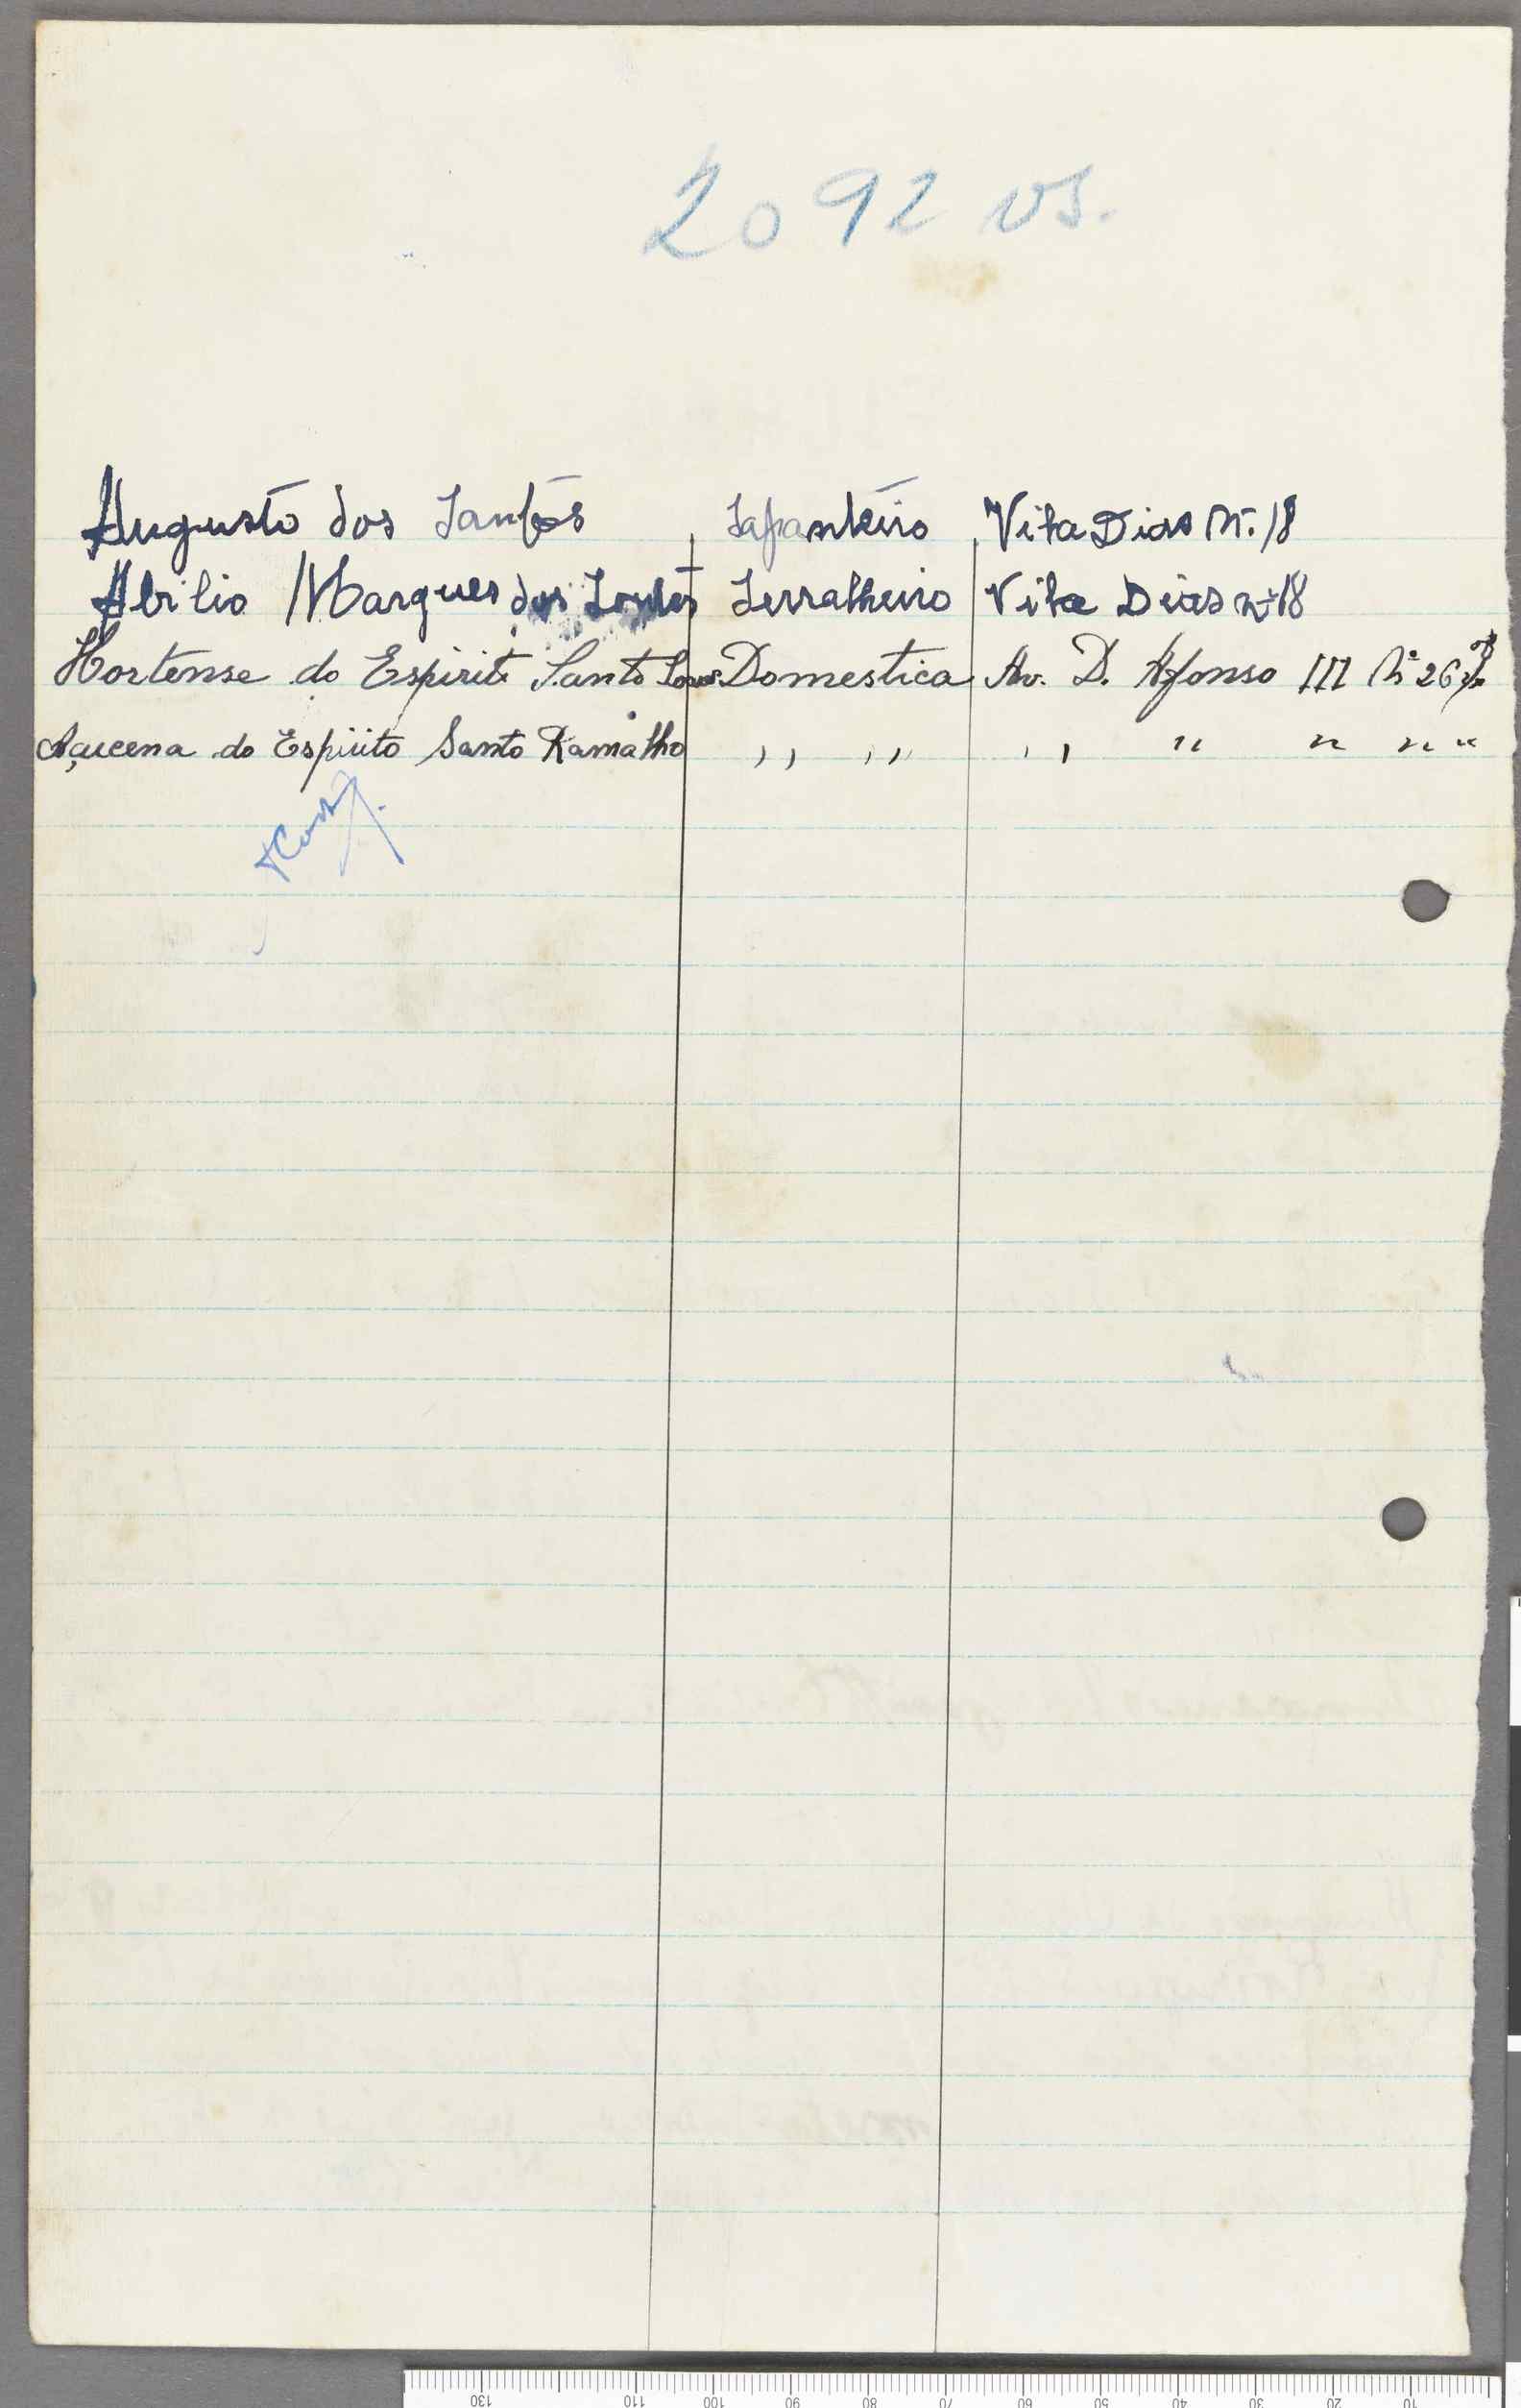 2092 vs.
Augusto dos Santos Sapanteiro Vila Dias Nº. 18
Abilio Marques dos Santos Serralheiro Vila Dias nº 18
Hortense do Espirito Santo Domestica Av. D. Afonso III Nº 26
Açucena do Espirito Santo Ramalho ,, ,, ,, " " " "